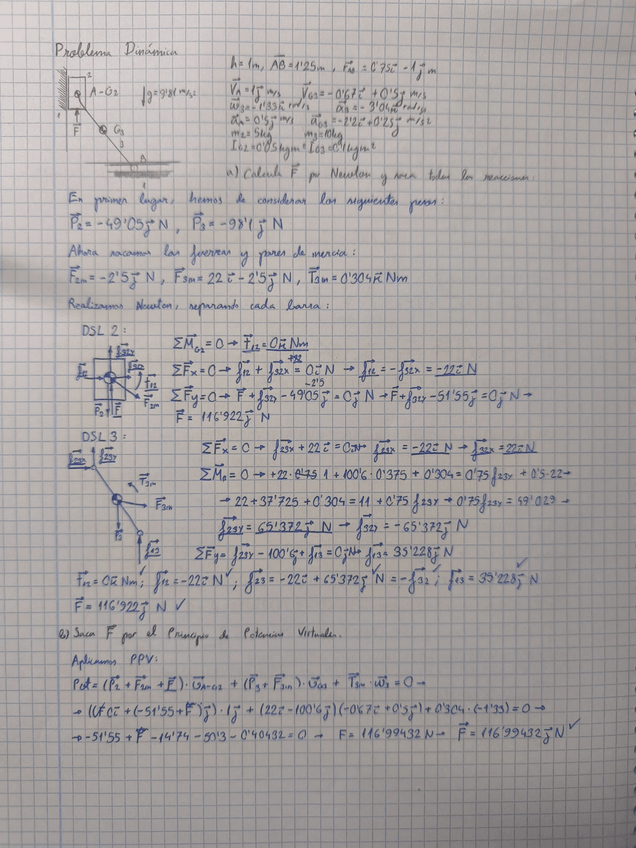 Problema Dinámica
h = 1m, AB = 1'25m, r⃗AB = 0'75i⃗ - 1j⃗ m
2
A-G2
g = 9'81 m/s²
V⃗A = 1j⃗ m/s V⃗G3 = -0'67i⃗ + 0'5j⃗ m/s
ω⃗3 = -1'33k⃗ rad/s α⃗3 = -3'04k⃗ rad/s²
a⃗A = 0'5j⃗ m/s² a⃗G3 = -2'2i⃗ + 0'25j⃗ m/s²
m2 = 5kg m3 = 10kg
IG2 = 0'05kgm² IG3 = 0'1kgm²
F⃗
G3
3
B
1
a) Calcula F⃗ por Newton y saca todas las reacciones.
En primer lugar, hemos de considerar los siguientes pesos:
P⃗2 = -49'05j⃗ N, P⃗3 = -98'1j⃗ N
Ahora sacamos las fuerzas y pares de inercia:
F⃗2m = -2'5j⃗ N, F⃗3m = 22i⃗ - 2'5j⃗ N, T⃗3m = 0'304k⃗ Nm
Realizamos Newton, separando cada barra:
DSL 2:
ΣM⃗G2 = 0 → t⃗12 = 0k⃗ Nm
ΣF⃗x = 0 → f⃗12 + f⃗32x = 0i⃗ N → f⃗12 = -f⃗32x = -22i⃗ N
ΣF⃗y = 0 → F⃗ + f⃗32y - 49'05j⃗ - 2'5 = 0j⃗ N → F⃗ + f⃗32y - 51'55j⃗ = 0j⃗ N →
F⃗ = 116'922j⃗ N
DSL 3:
ΣF⃗x = 0 → f⃗23x + 22i⃗ = 0i⃗ N → f⃗23x = -22i⃗ N → f⃗32x = 22i⃗ N
ΣM⃗B = 0 → +22·1 + 100'6·0'375 + 0'304 = 0'75f⃗23y + 0'5·22 →
→ 22 + 37'725 + 0'304 = 11 + 0'75f⃗23y → 0'75f⃗23y = 49'029 →
f⃗23y = 65'372j⃗ N → f⃗32y = -65'372j⃗ N
ΣF⃗y = f⃗23y - 100'6j⃗ + f⃗13 = 0j⃗ N → f⃗13 = 35'228j⃗ N
t⃗12 = 0k⃗ Nm; f⃗12 = -22i⃗ N; f⃗23 = -22i⃗ + 65'372j⃗ N = -f⃗32; f⃗13 = 35'228j⃗ N
F⃗ = 116'922j⃗ N ✓
b) Saca F⃗ por el Principio de Potencias Virtuales.
Aplicamos PPV:
Pot = (P⃗2 + F⃗2m + F⃗)·v⃗A-G2 + (P⃗3 + F⃗3m)·v⃗G3 + T⃗3m·ω⃗3 = 0 →
→ (0i⃗ + (-51'55 + F)j⃗)·1j⃗ + (22i⃗ - 100'6j⃗)(-0'67i⃗ + 0'5j⃗) + 0'304·(-1'33) = 0 →
→ -51'55 + F - 14'74 - 50'3 - 0'40432 = 0 → F = 116'99432 N → F⃗ = 116'99432j⃗ N ✓